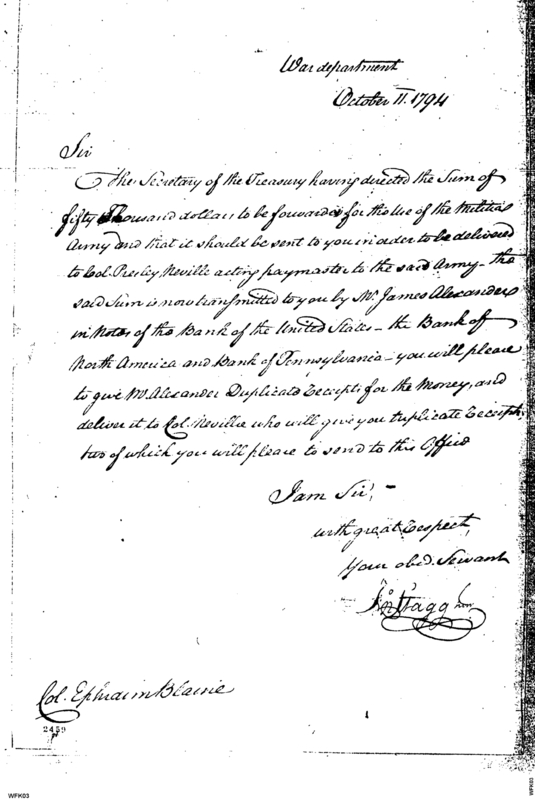 War department
October 11. 1794
Sir
The Secretary of the Treasury having directed the Sum of
fifty Thousand dollars to be forwarded for the Use of the Militia
Army and that it should be sent to you in order to be delivered
to Col. Presley Neville acting paymaster to the said Army - the
said Sum is now transmitted to you by Mr. James Alexander
in Notes of the Bank of the United States - the Bank of
North America and Bank of Pennsylvania - you will please
to give Mr. Alexander Duplicate Receipts for the Money, and
deliver it to Col. Neville who will give you triplicate Receipts
two of which you will please to send to this Office
I am Sir, -
with great Respect,
Your obed. Servant
Jno Stagg Junr
Col. Ephraim Blaine
2459
WFK03
WFK03